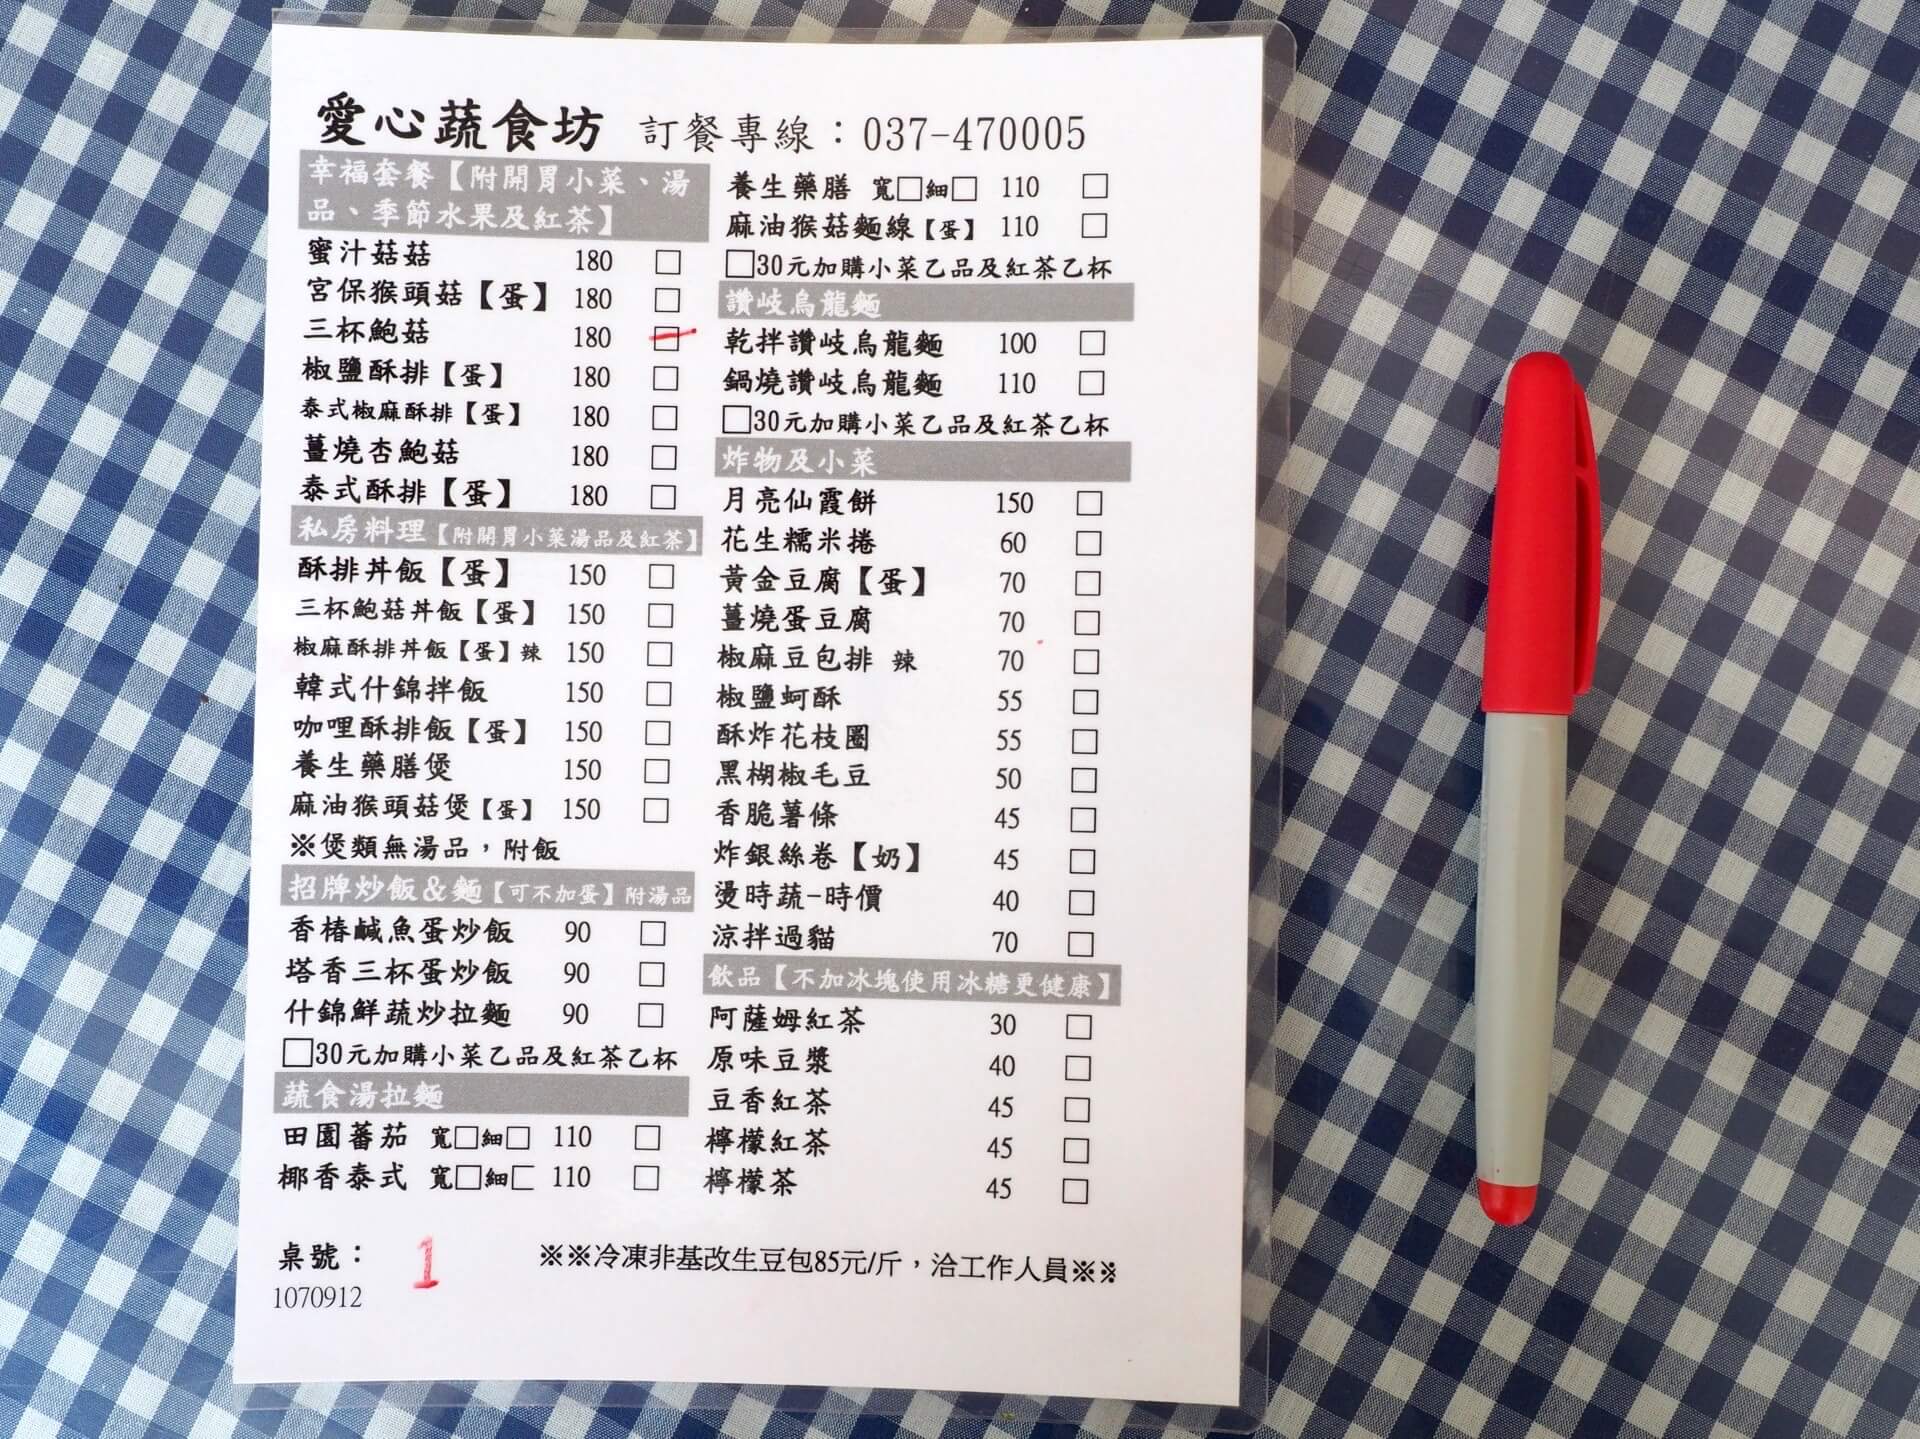 愛心蔬食坊 訂餐專線：037-470005
幸福套餐【附開胃小菜、湯
品、季節水果及紅茶】
蜜汁菇菇 180 □
宮保猴頭菇【蛋】 180 □
三杯鮑菇 180 □
椒鹽酥排【蛋】 180 □
泰式椒麻酥排【蛋】 180 □
薑燒杏鮑菇 180 □
泰式酥排【蛋】 180 □
私房料理【附開胃小菜湯品及紅茶】
酥排丼飯【蛋】 150 □
三杯鮑菇丼飯【蛋】 150 □
椒麻酥排丼飯【蛋】辣 150 □
韓式什錦拌飯 150 □
咖哩酥排飯【蛋】 150 □
養生藥膳煲 150 □
麻油猴頭菇煲【蛋】 150 □
※煲類無湯品，附飯
招牌炒飯&麵【可不加蛋】附湯品
香椿鹹魚蛋炒飯 90 □
塔香三杯蛋炒飯 90 □
什錦鮮蔬炒拉麵 90 □
□30元加購小菜乙品及紅茶乙杯
蔬食湯拉麵
田園蕃茄 寬□細□ 110 □
椰香泰式 寬□細□ 110 □
養生藥膳 寬□細□ 110 □
麻油猴菇麵線【蛋】 110 □
□30元加購小菜乙品及紅茶乙杯
讚岐烏龍麵
乾拌讚岐烏龍麵 100 □
鍋燒讚岐烏龍麵 110 □
□30元加購小菜乙品及紅茶乙杯
炸物及小菜
月亮仙霞餅 150 □
花生糯米捲 60 □
黃金豆腐【蛋】 70 □
薑燒蛋豆腐 70 □
椒麻豆包排 辣 70 □
椒鹽蚵酥 55 □
酥炸花枝圈 55 □
黑楜椒毛豆 50 □
香脆薯條 45 □
炸銀絲卷【奶】 45 □
燙時蔬-時價 40 □
涼拌過貓 70 □
飲品【不加冰塊使用冰糖更健康】
阿薩姆紅茶 30 □
原味豆漿 40 □
豆香紅茶 45 □
檸檬紅茶 45 □
檸檬茶 45 □
桌號： 1
※※冷凍非基改生豆包85元/斤，洽工作人員※※
1070912